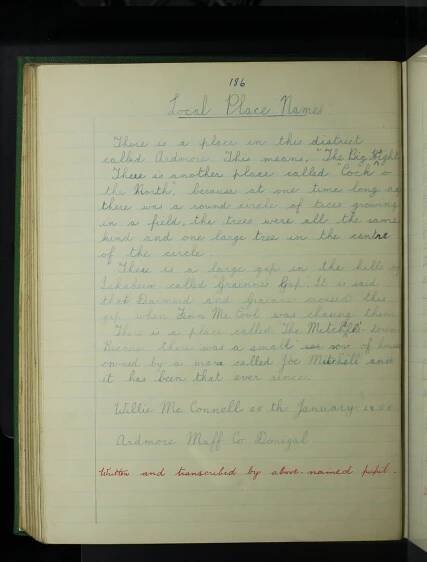 186
Local Place Names
There is a place in this district
called Ardmore. This means, "The Big Hight
There is another place called "Cock o
the North" because at one time long ago
there was a round circle of trees growing
in a field, the trees were all the same
kind and one large tree in the centre
of the circle.
There is a large gap in the hills
called Grainne's Gap. It is said
that Diarmuid and Grainne crossed this
gap when Finn Mc Cool was chasing them
There is a place called The Mitchell
there was a small row of
owned by a man called Joe Mitchell and
it has been that ever since.
Willie Mc Connell th January
Ardmore Muff Co Donigal
Written and transcribed by above-named pupil.